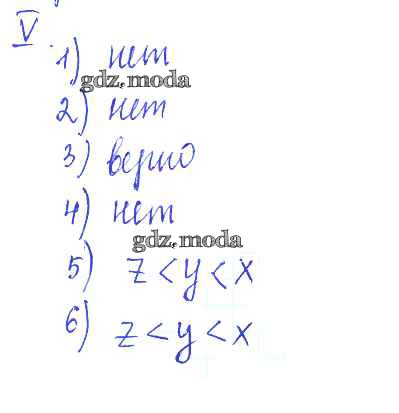 V
1) нет
gdz.moda
2) нет
3) верно
4) нет
gdz.moda
5) z < y < x
6) z < y < x